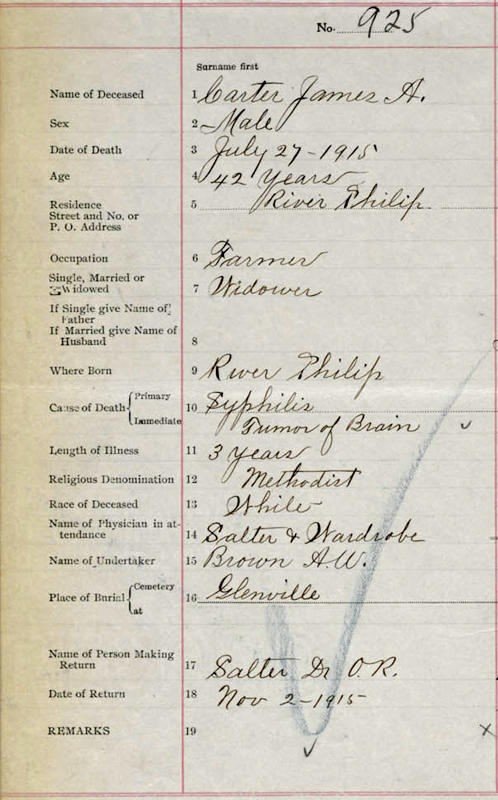 No. 925
Surname first
Name of Deceased 1 Carter James A.
Sex 2 Male
Date of Death 3 July 27-1915
Age 4 42 Years
Residence 5 River Philip
Street and No. or
P. O. Address
Occupation 6 Farmer
Single, Married or
Widowed 7 Widower
If Single give Name of
Father
If Married give Name of
Husband 8
Where Born 9 River Philip
Cause of Death { Primary 10 Syphilis
Immediate Tumor of Brain
Length of Illness 11 3 years
Religious Denomination 12 Methodist
Race of Deceased 13 White
Name of Physician in at-
tendance 14 Salter & Wardrobe
Name of Undertaker 15 Brown A.W.
Place of Burial { Cemetery 16 Glenville
at
Name of Person Making
Return 17 Salter Dr O.R.
Date of Return 18 Nov 2-1915
REMARKS 19